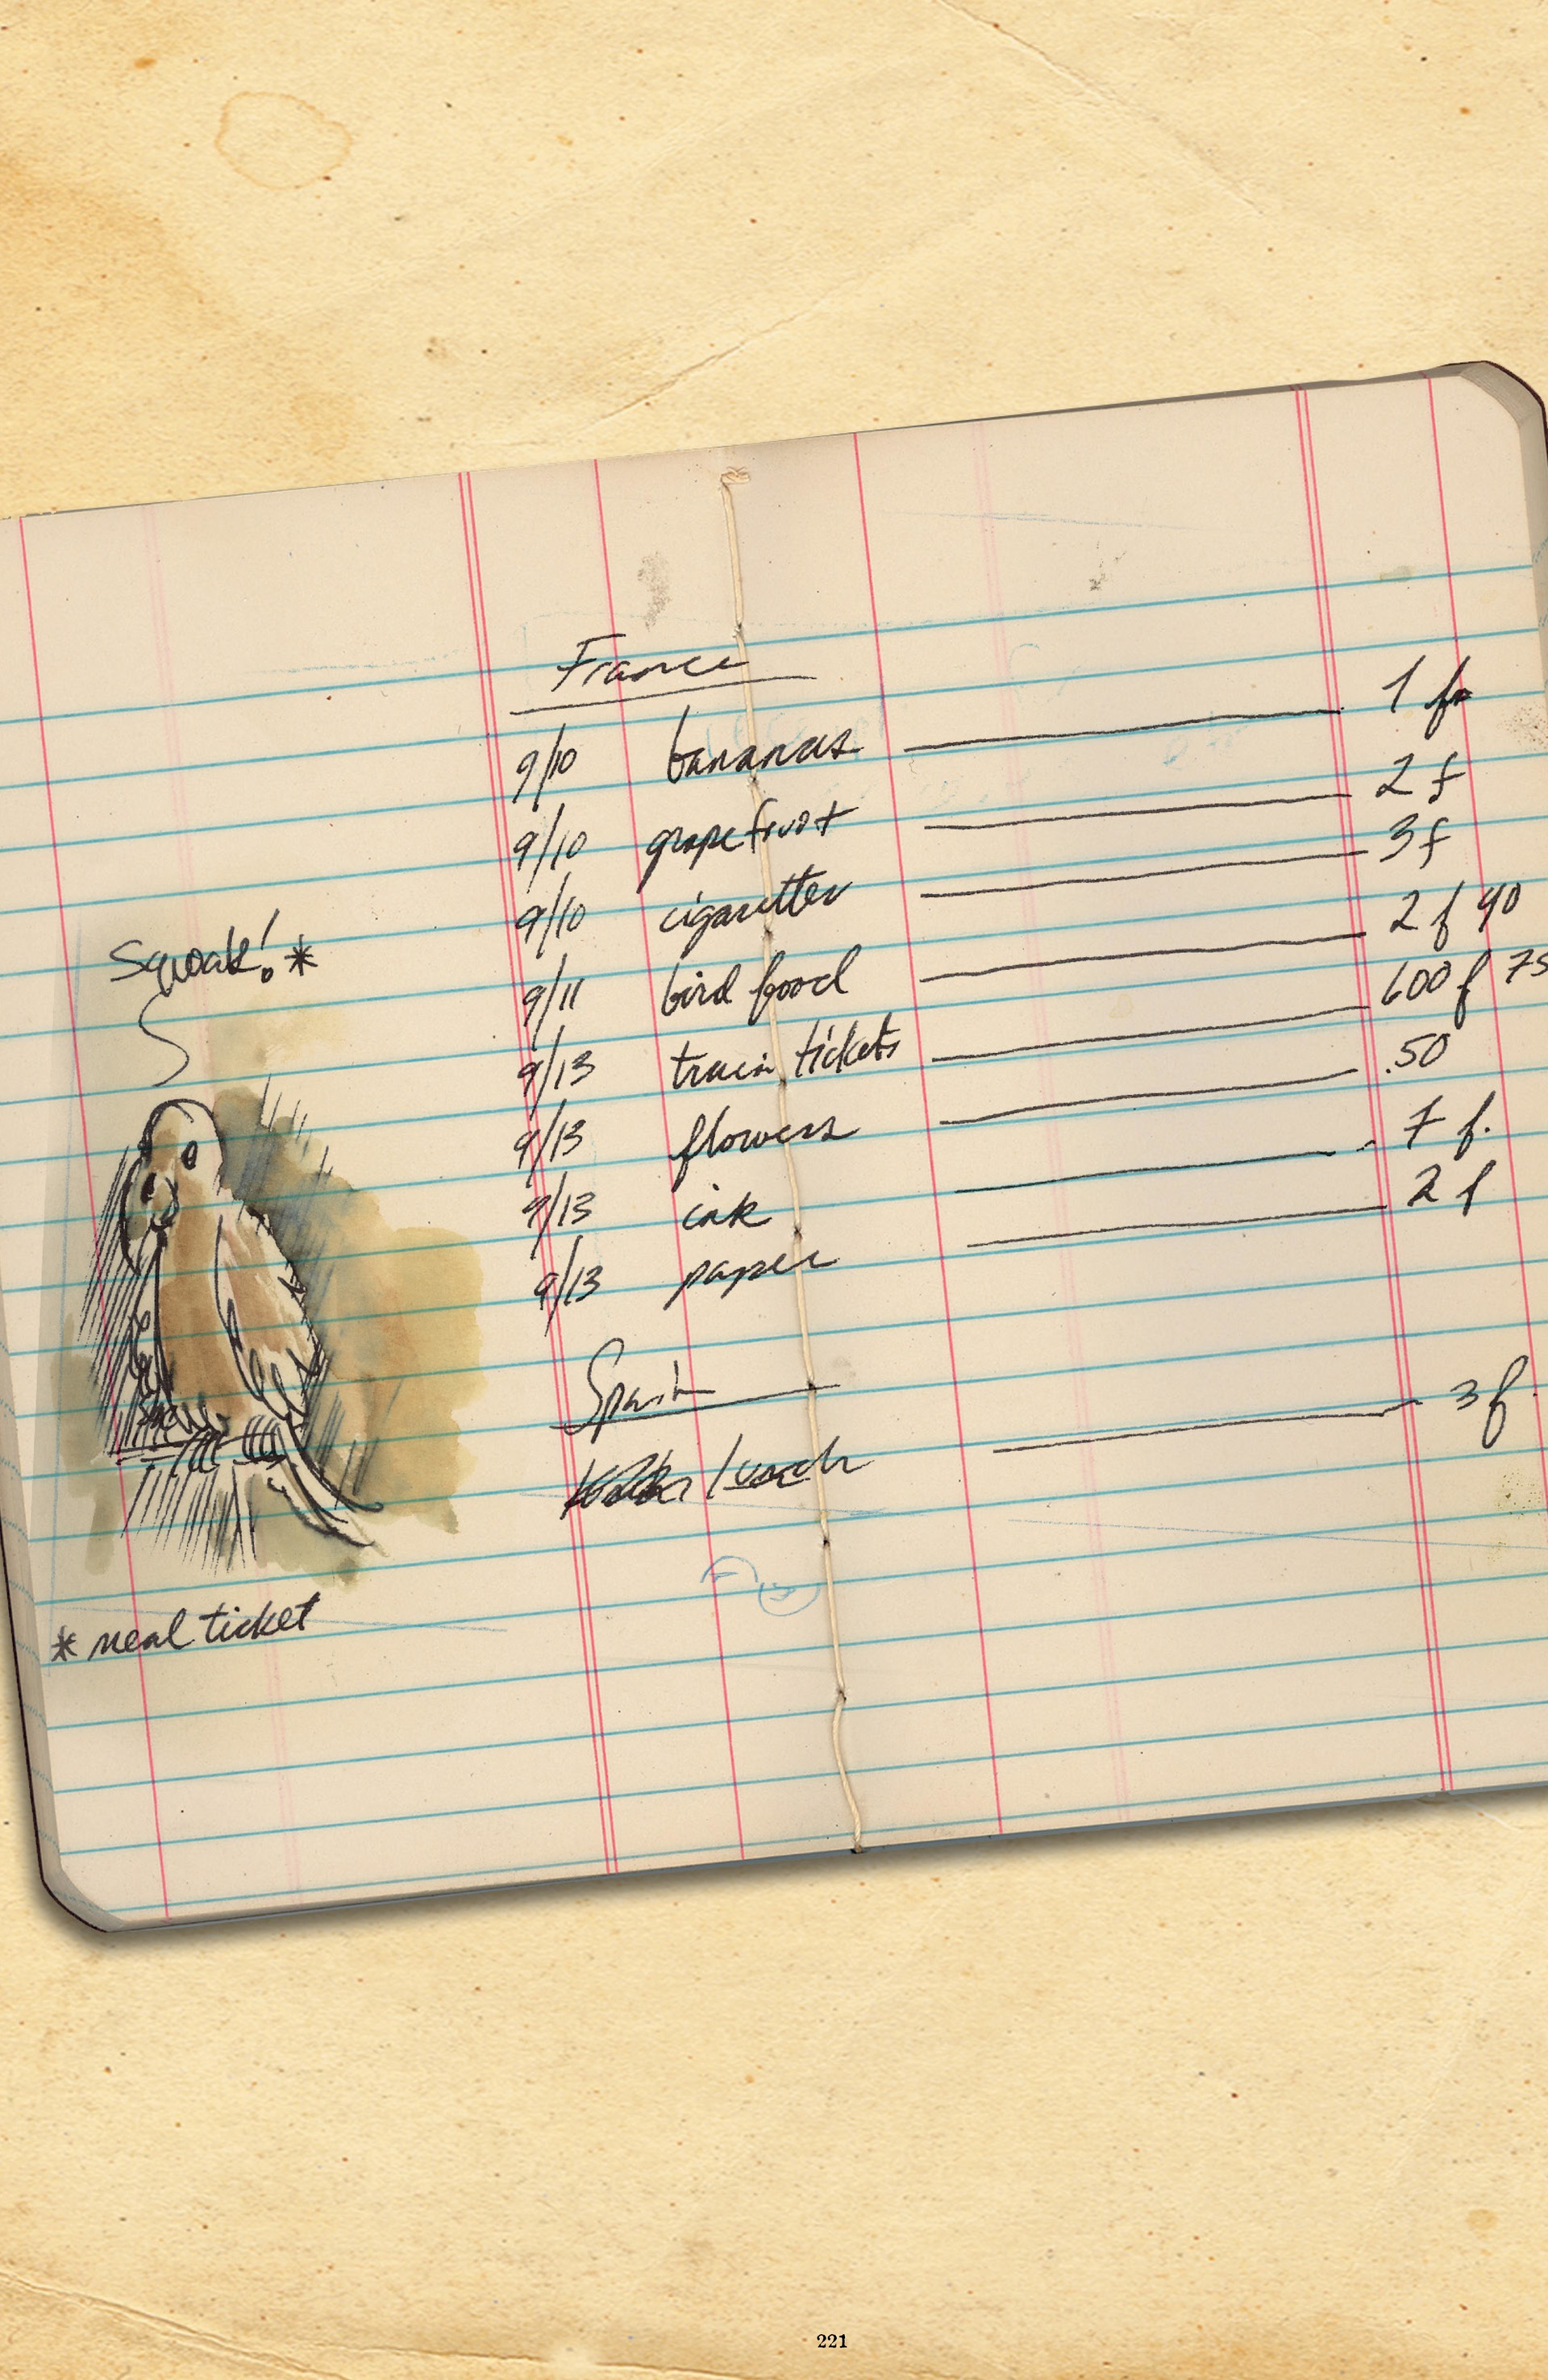 France
9/10 bananas 1 fr
9/10 grapefruit 2 f
9/10 cigarettes 3 f
9/11 bird food 2 f 40
9/13 train tickets 600 f 75
9/13 flowers .50
9/13 ink 7 f.
9/13 paper 2 f
Spain
lunch 3 f.
Squak! *
* meal ticket
221